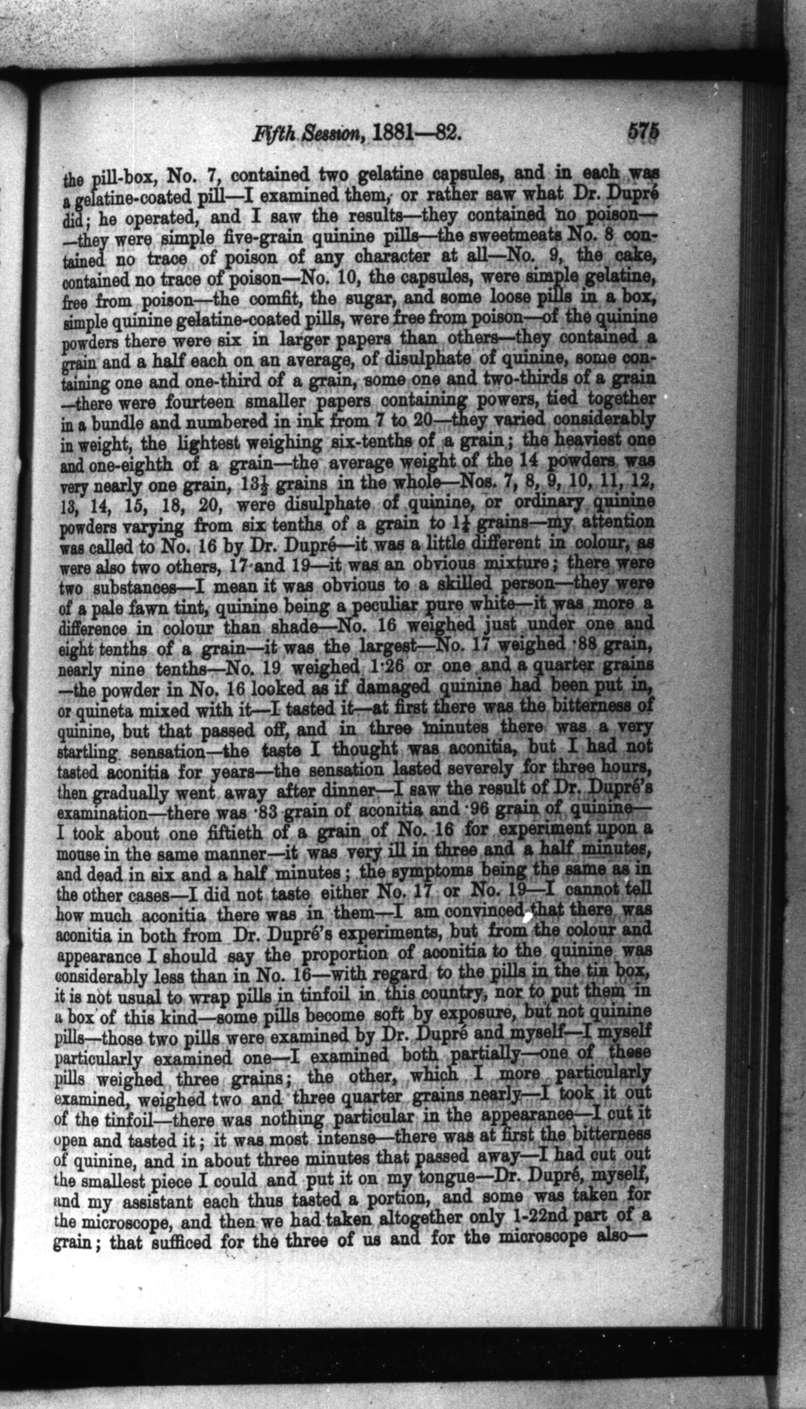 Fifth Session, 1881—82. 575
the pill-box, No. 7, contained two gelatine capsules, and in each was
a gelatine-coated pill—I examined them, or rather saw what Dr. Dupré
did; he operated, and I saw the results—they contained no poison—
—they were simple five-grain quinine pills—the sweetmeats No. 8 con-
tained no trace of poison of any character at all—No. 9, the cake,
contained no trace of poison—No. 10, the capsules, were simple gelatine,
free from poison—the comfit, the sugar, and some loose pills in a box,
simple quinine gelatine-coated pills, were free from poison—of the quinine
powders there were six in larger papers than others—they contained a
grain and a half each on an average, of disulphate of quinine, some con-
taining one and one-third of a grain, some one and two-thirds of a grain
—there were fourteen smaller papers containing powers, tied together
in a bundle and numbered in ink from 7 to 20—they varied considerably
in weight, the lightest weighing six-tenths of a grain; the heaviest one
and one-eighth of a grain—the average weight of the 14 powders was
very nearly one grain, 13½ grains in the whole—Nos. 7, 8, 9, 10, 11, 12,
13, 14, 15, 18, 20, were disulphate of quinine, or ordinary quinine
powders varying from six tenths of a grain to 1¼ grains—my attention
was called to No. 16 by Dr. Dupré—it was a little different in colour, as
were also two others, 17 and 19—it was an obvious mixture; there were
two substances—I mean it was obvious to a skilled person—they were
of a pale fawn tint, quinine being a peculiar pure white—it was more a
difference in colour than shade—No. 16 weighed just under one and
eight tenths of a grain—it was the largest—No. 17 weighed ·88 grain,
nearly nine tenths—No. 19 weighed 1·26 or one and a quarter grains
—the powder in No. 16 looked as if damaged quinine had been put in,
or quineta mixed with it—I tasted it—at first there was the bitterness of
quinine, but that passed off, and in three minutes there was a very
startling sensation—the taste I thought was aconitia, but I had not
tasted aconitia for years—the sensation lasted severely for three hours,
then gradually went away after dinner—I saw the result of Dr. Dupré's
examination—there was ·83 grain of aconitia and ·96 grain of quinine—
I took about one fiftieth of a grain of No. 16 for experiment upon a
mouse in the same manner—it was very ill in three and a half minutes,
and dead in six and a half minutes; the symptoms being the same as in
the other cases—I did not taste either No. 17 or No. 19—I cannot tell
how much aconitia there was in them—I am convinced that there was
aconitia in both from Dr. Dupré's experiments, but from the colour and
appearance I should say the proportion of aconitia to the quinine was
considerably less than in No. 16—with regard to the pills in the tin box,
it is not usual to wrap pills in tinfoil in this country, nor to put them in
a box of this kind—some pills become soft by exposure, but not quinine
pills—those two pills were examined by Dr. Dupré and myself—I myself
particularly examined one—I examined both partially—one of these
pills weighed three grains; the other, which I more particularly
examined, weighed two and three quarter grains nearly—I took it out
of the tinfoil—there was nothing particular in the appearance—I cut it
open and tasted it; it was most intense—there was at first the bitterness
of quinine, and in about three minutes that passed away—I had cut out
the smallest piece I could and put it on my tongue—Dr. Dupré, myself,
and my assistant each thus tasted a portion, and some was taken for
the microscope, and then we had taken altogether only 1-22nd part of a
grain; that sufficed for the three of us and for the microscope also—